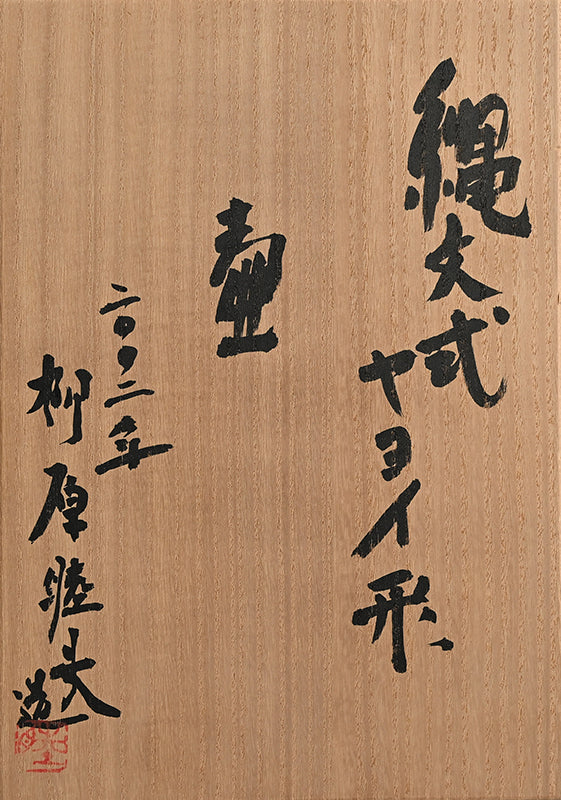 縄文式
ヤヨイ形
壷
二〇〇二年
柳原睦夫
造